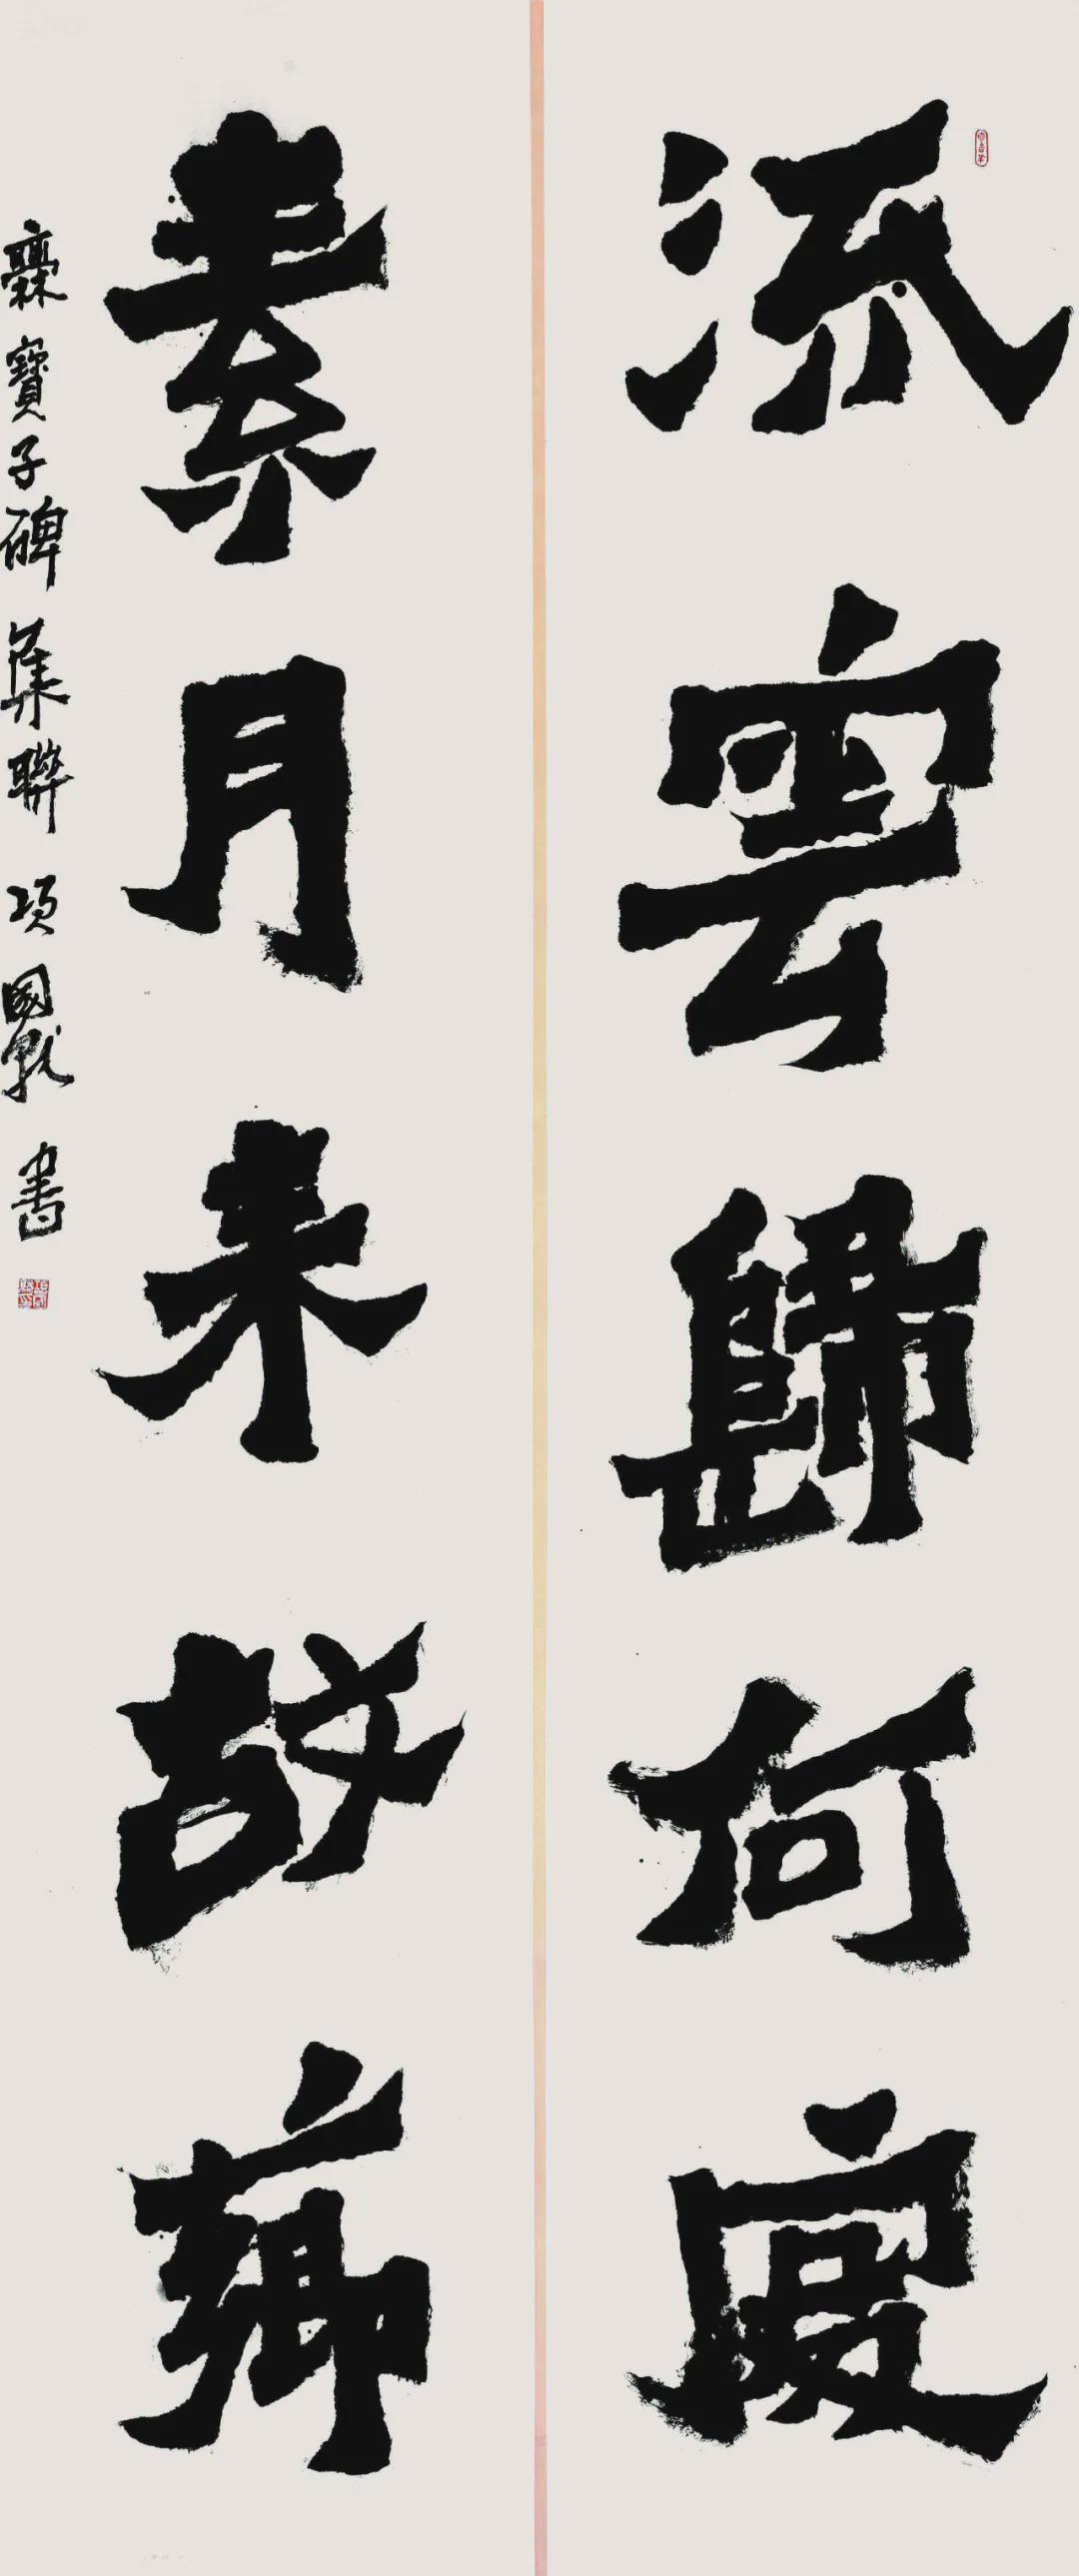 流雲歸何處
素月来故鄉
爨寶子碑集聯 項國 書